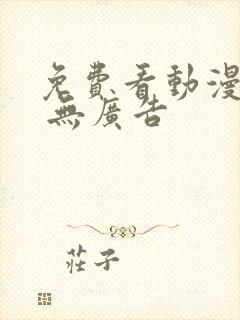 免費看動漫
無廣告
莊子